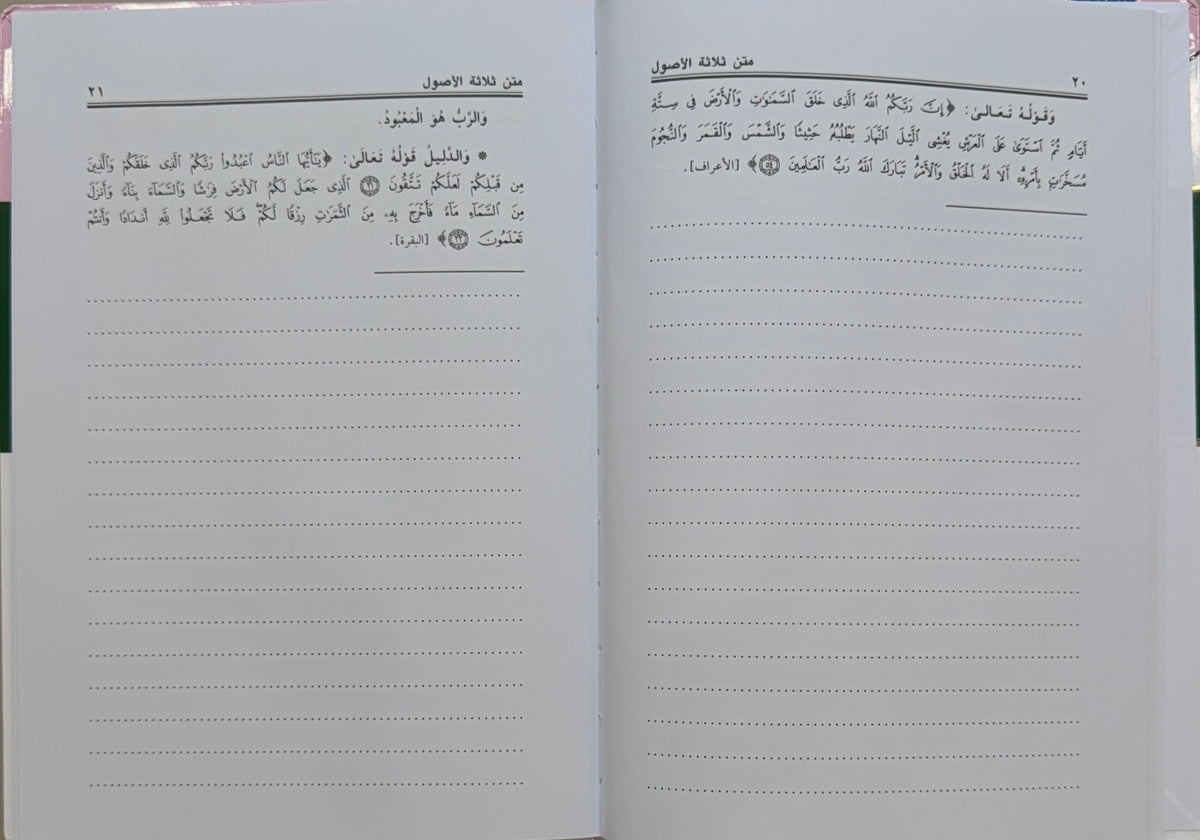 ٢٠
متن ثلاثة الأصول
وَقَوْلُهُ تَعَالَىٰ: ﴿إِنَّ رَبَّكُمُ ٱللَّهُ ٱلَّذِى خَلَقَ ٱلسَّمَٰوَٰتِ وَٱلْأَرْضَ فِى سِتَّةِ
أَيَّامٍ ثُمَّ ٱسْتَوَىٰ عَلَى ٱلْعَرْشِ يُغْشِى ٱلَّيْلَ ٱلنَّهَارَ يَطْلُبُهُۥ حَثِيثًا وَٱلشَّمْسَ وَٱلْقَمَرَ وَٱلنُّجُومَ
مُسَخَّرَٰتٍۭ بِأَمْرِهِۦٓ أَلَا لَهُ ٱلْخَلْقُ وَٱلْأَمْرُ تَبَارَكَ ٱللَّهُ رَبُّ ٱلْعَٰلَمِينَ ٥٤﴾ [الأعراف].
متن ثلاثة الأصول
٢١
وَالرَّبُّ هُوَ الْمَعْبُودُ.
* وَالدَّلِيلُ قَوْلُهُ تَعَالَىٰ: ﴿يَٰٓأَيُّهَا ٱلنَّاسُ ٱعْبُدُوا۟ رَبَّكُمُ ٱلَّذِى خَلَقَكُمْ وَٱلَّذِينَ
مِن قَبْلِكُمْ لَعَلَّكُمْ تَتَّقُونَ ٢١ ٱلَّذِى جَعَلَ لَكُمُ ٱلْأَرْضَ فِرَٰشًا وَٱلسَّمَآءَ بِنَآءً وَأَنزَلَ
مِنَ ٱلسَّمَآءِ مَآءً فَأَخْرَجَ بِهِۦ مِنَ ٱلثَّمَرَٰتِ رِزْقًا لَّكُمْ ۖ فَلَا تَجْعَلُوا۟ لِلَّهِ أَندَادًا وَأَنتُمْ
تَعْلَمُونَ ٢٢﴾ [البقرة].